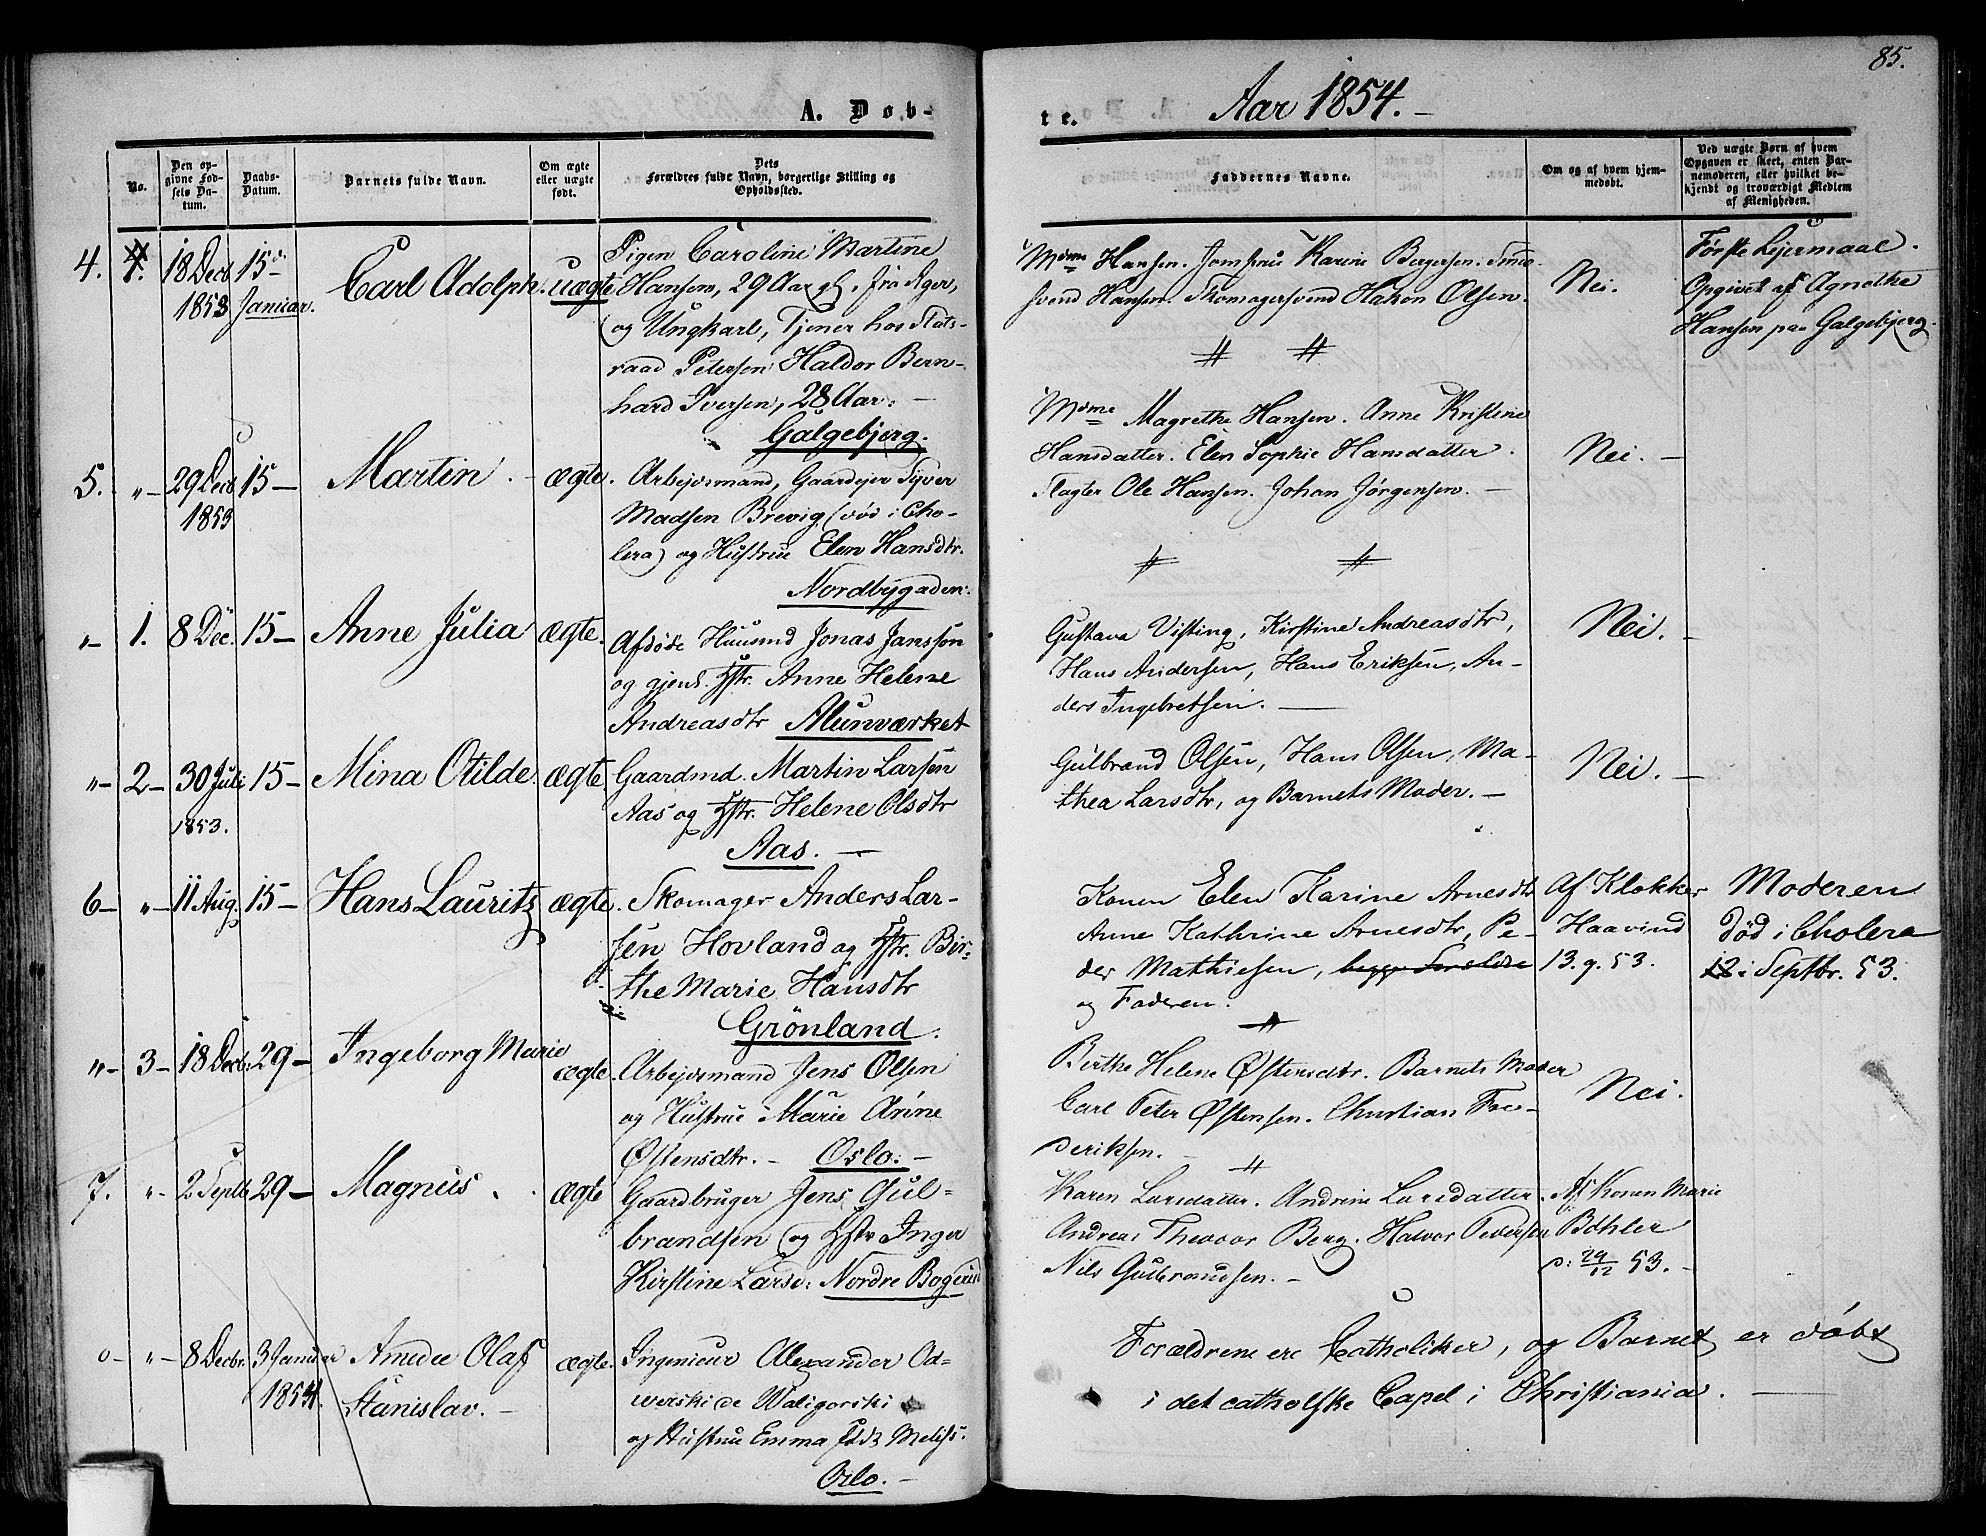 85.
A. Døb-
te.
Aar 1854.
No.
Den op-
givne Fød-
sels Da-
tum.
Daabs-
Datum.
Barnets fulde Navn.
Om ægte
eller uægte
født.
Dets
Forældres fulde Navn, borgerlige Stilling og
Opholdssted.
Faddernes Navne.
Om og af hvem hjem-
medøbt.
Ved uægte Børn af hvem
Opgaven er skeet, enten Bar-
nemoderen, eller hvilket be-
kjendt og troværdigt Medlem
af Menigheden.
4. 18 Decb. 1853 15de Januar. Carl Adolph. uægte
Pigen Caroline Martine
Hansen, 29 Aar gl. fra Ager,
og Ungkarl, Tjener hos Stats-
raad Petersen Haldor Bern-
hard Iversen, 28 Aar. —
Galgebjerg.
Mdme Hansen. Jomfrue Karine Bergersen. Smed-
svend Hansen. Skomagersvend Hakon Olsen.
Nei.
Første Lejermaal.
Opgivet af Agnethe
Hansen paa Galgebjerg.
5. " 29 Decb 1853 15 — Martin. — ægte.
Arbejdsmand, Gaardejer Syver
Madsen Brevig (død i Cho-
lera) og Hustrue Elen Hansdtr.
Nordbygaden.
Mdme Magrethe Hansen. Anne Kristine
Hansdatter. Elen Sophie Hansdatter.
Slagter Ole Hansen. Johan Jørgensen. —
Nei. —
" 1. 8 Dec. 15 — Anne Julia ægte.
Afdøde Huusmd Jonas Jansson
og gjenl. Hstr. Anne Helene
Andreasdtr Alunværket
Gustava Visting, Kirstine Andreasdtr,
Hans Andersen, Hans Eriksen, An-
ders Ingebretsen. —
Nei. —
" 2 — 30 Juli 1853. 15 — Mina Otilde. ægte.
Gaardmd. Martin Larsen
Aas og Hstr. Helene Olsdtr
Aas. —
Gulbrand Olsen, Hans Olsen, Ma-
thea Larsdtr, og Barnets Moder. —
Nei. —
6 — " 11 Aug. 15 — Hans Lauritz ægte.
Skomager Anders Lar-
sen Hovland og Hstr. Bir-
the Marie Hansdtr
Grönland.
Konen Elen Karine Arnesdtr
Anne Kathrine Arnesdtr, Pe-
der Mathiesen,
og Faderen.
Af Klokker
Haavind
13. 9. 53.
Moderen
død i Cholera
i Septbr. 53.
" 3 — 18 Decb. 29 — Ingeborg Marie ægte.
Arbejdsmand Jens Olsen
og Hustrue Marie Anine
Østensdtr. — Oslo. —
Berthe Helene Østensdtr. Barnets Moder
Carl Peter Østensen. Christian Fre-
deriksen. —
Nei.
7. " 2 Septb 29 — Magnus. ægte
Gaardbruger Jens Gul-
brandsen og Hstr Inger
Kirstine Larsd: Nordre Bogerud
Karen Larsdatter. Andrine Larsdatter.
Andreas Theodor Berg. Halvor Pedersen
Nils Gulbrandsen. —
Af Konen Marie
Böhler
d: 29/12 53. —
0 — " 8 Decbr. 3 Januar 1854. Amedee Olaf
Stanislav. — ægte.
Ingenieur Alexander Od-
werski de Waligorski
og Hustrue Emma
Oslo. —
Forældrene ere Catholiker, og Barnet er döbt
i det catholske Capel i Christiania. —